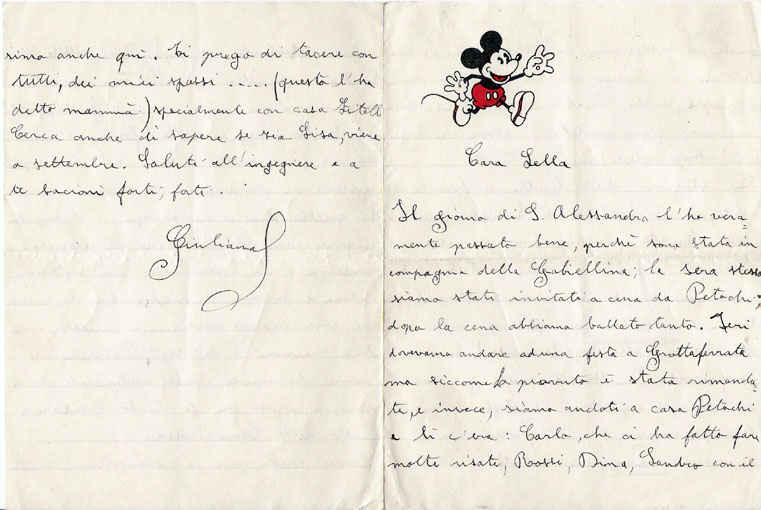 rima anche qui. Ti prego di tacere con
tutti, dei miei spassi ..... (questo l'ha
detto mammà) specialmente con casa
Cerca anche di sapere se zia Lisa, viene
a settembre. Saluti all'ingegniere e a
te bacioni forti, forti.
Giuliana
Cara Lella
Il giorno di S. Alessandra l'ho vera
mente passato bene, perchè sono stata in
compagnia della Gabiellina; la sera stessa
siamo stati invitati a cena da Petochi,
dopo la cena abbiamo ballato tanto. Ieri
dovevamo andare ad una festa a Grottaferrata
ma siccome ha piovuto è stata rimanda
ta, e invece, siamo andati a casa Petochi
e lì c'era: Carlo, che ci ha fatto fare
molte risate, Rossi, Dima, Sandro con il